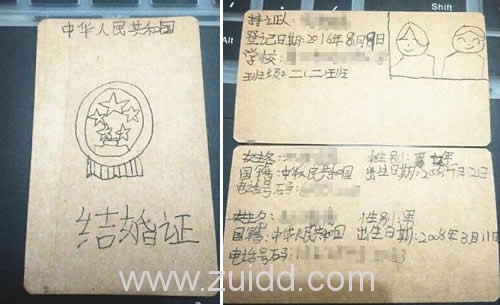 中华人民共和国
结婚证
持证人:
登记日期:2016年8月9日
学校:
班级:二、二班
女生名: 性别:
国籍:中华人民共和国 出生日期:2008年7月21日
电话号石码:
女生名: 性别:男
国籍:中华人民共和国 出生日期:2008年3月11日
电话号石码:
Shift
Alt
www.zuidd.com